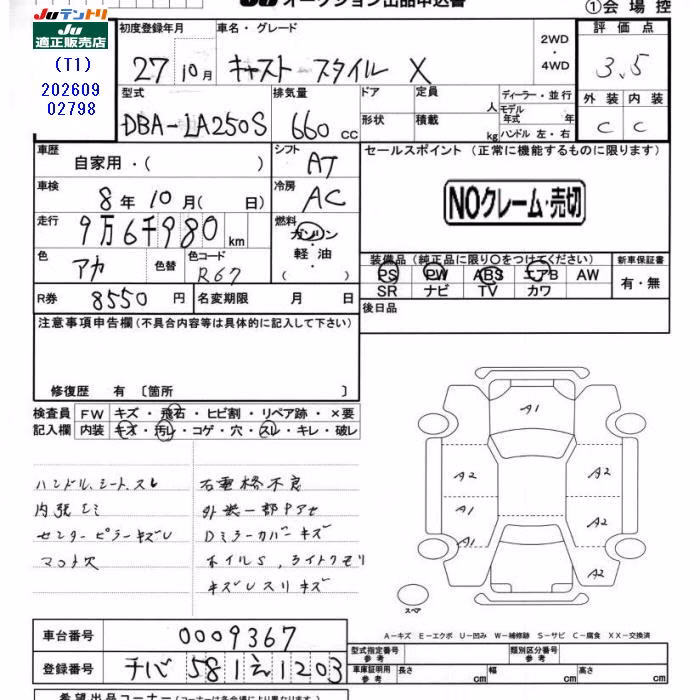 JUテントリ
JU
適正販売店
(T1)
202609
02798
JU オークション出品申込書
①会場控
初度登録年月
27 10月
車名・グレード
キャスト スタイル X
2WD
・
4WD
評価点
3.5
型式
DBA-LA250S
排気量
660 cc
ドア
形状
定員 人
積載 kg
ディーラー・並行
モデル年式 年
ハンドル 左・右
外装 内装
C C
車歴
自家用・( )
シフト
AT
セールスポイント (正常に機能するものに限ります)
NOクレーム・売切
車検
8年10月( 日)
冷房
AC
走行
9万6千980km
燃料
ガソリン
・
軽油
・
( )
色
アカ
色替
色コード
R67
装備品(純正品に限り〇をつけてください)
新車保証書
PS PW ABS エアB AW
SR ナビ TV カワ
有・無
R券 8550円
名変期限 月 日
後日品
注意事項申告欄(不具合内容等は具体的に記入して下さい)
修復歴 有〔箇所 〕
検査員
記入欄
FW キズ・飛石・ヒビ割・リペア跡・×要
内装 キズ・汚レ・コゲ・穴・スレ・キレ・破レ
ハンドル、シート、スレ
内張シミ
センターピラーキズU
マット穴
外装一部アセ
Dミラーカバーキズ
ホイルS、ライトクモリ
キズUスリキズ
A1
A2 A2
A1 A2
A1
A2
スペア
A-キズ E-エクボ U-凹み W-補修跡 S-サビ C-腐食 XX-交換済
車台番号 0009367
登録番号 チバ 581 え 1203
型式指定番号
参考
類別区分番号
参考
車庫証明用
参考
長さ cm 幅 cm 高さ cm
希望出品コーナー(コーナーは各会場により異なります。)